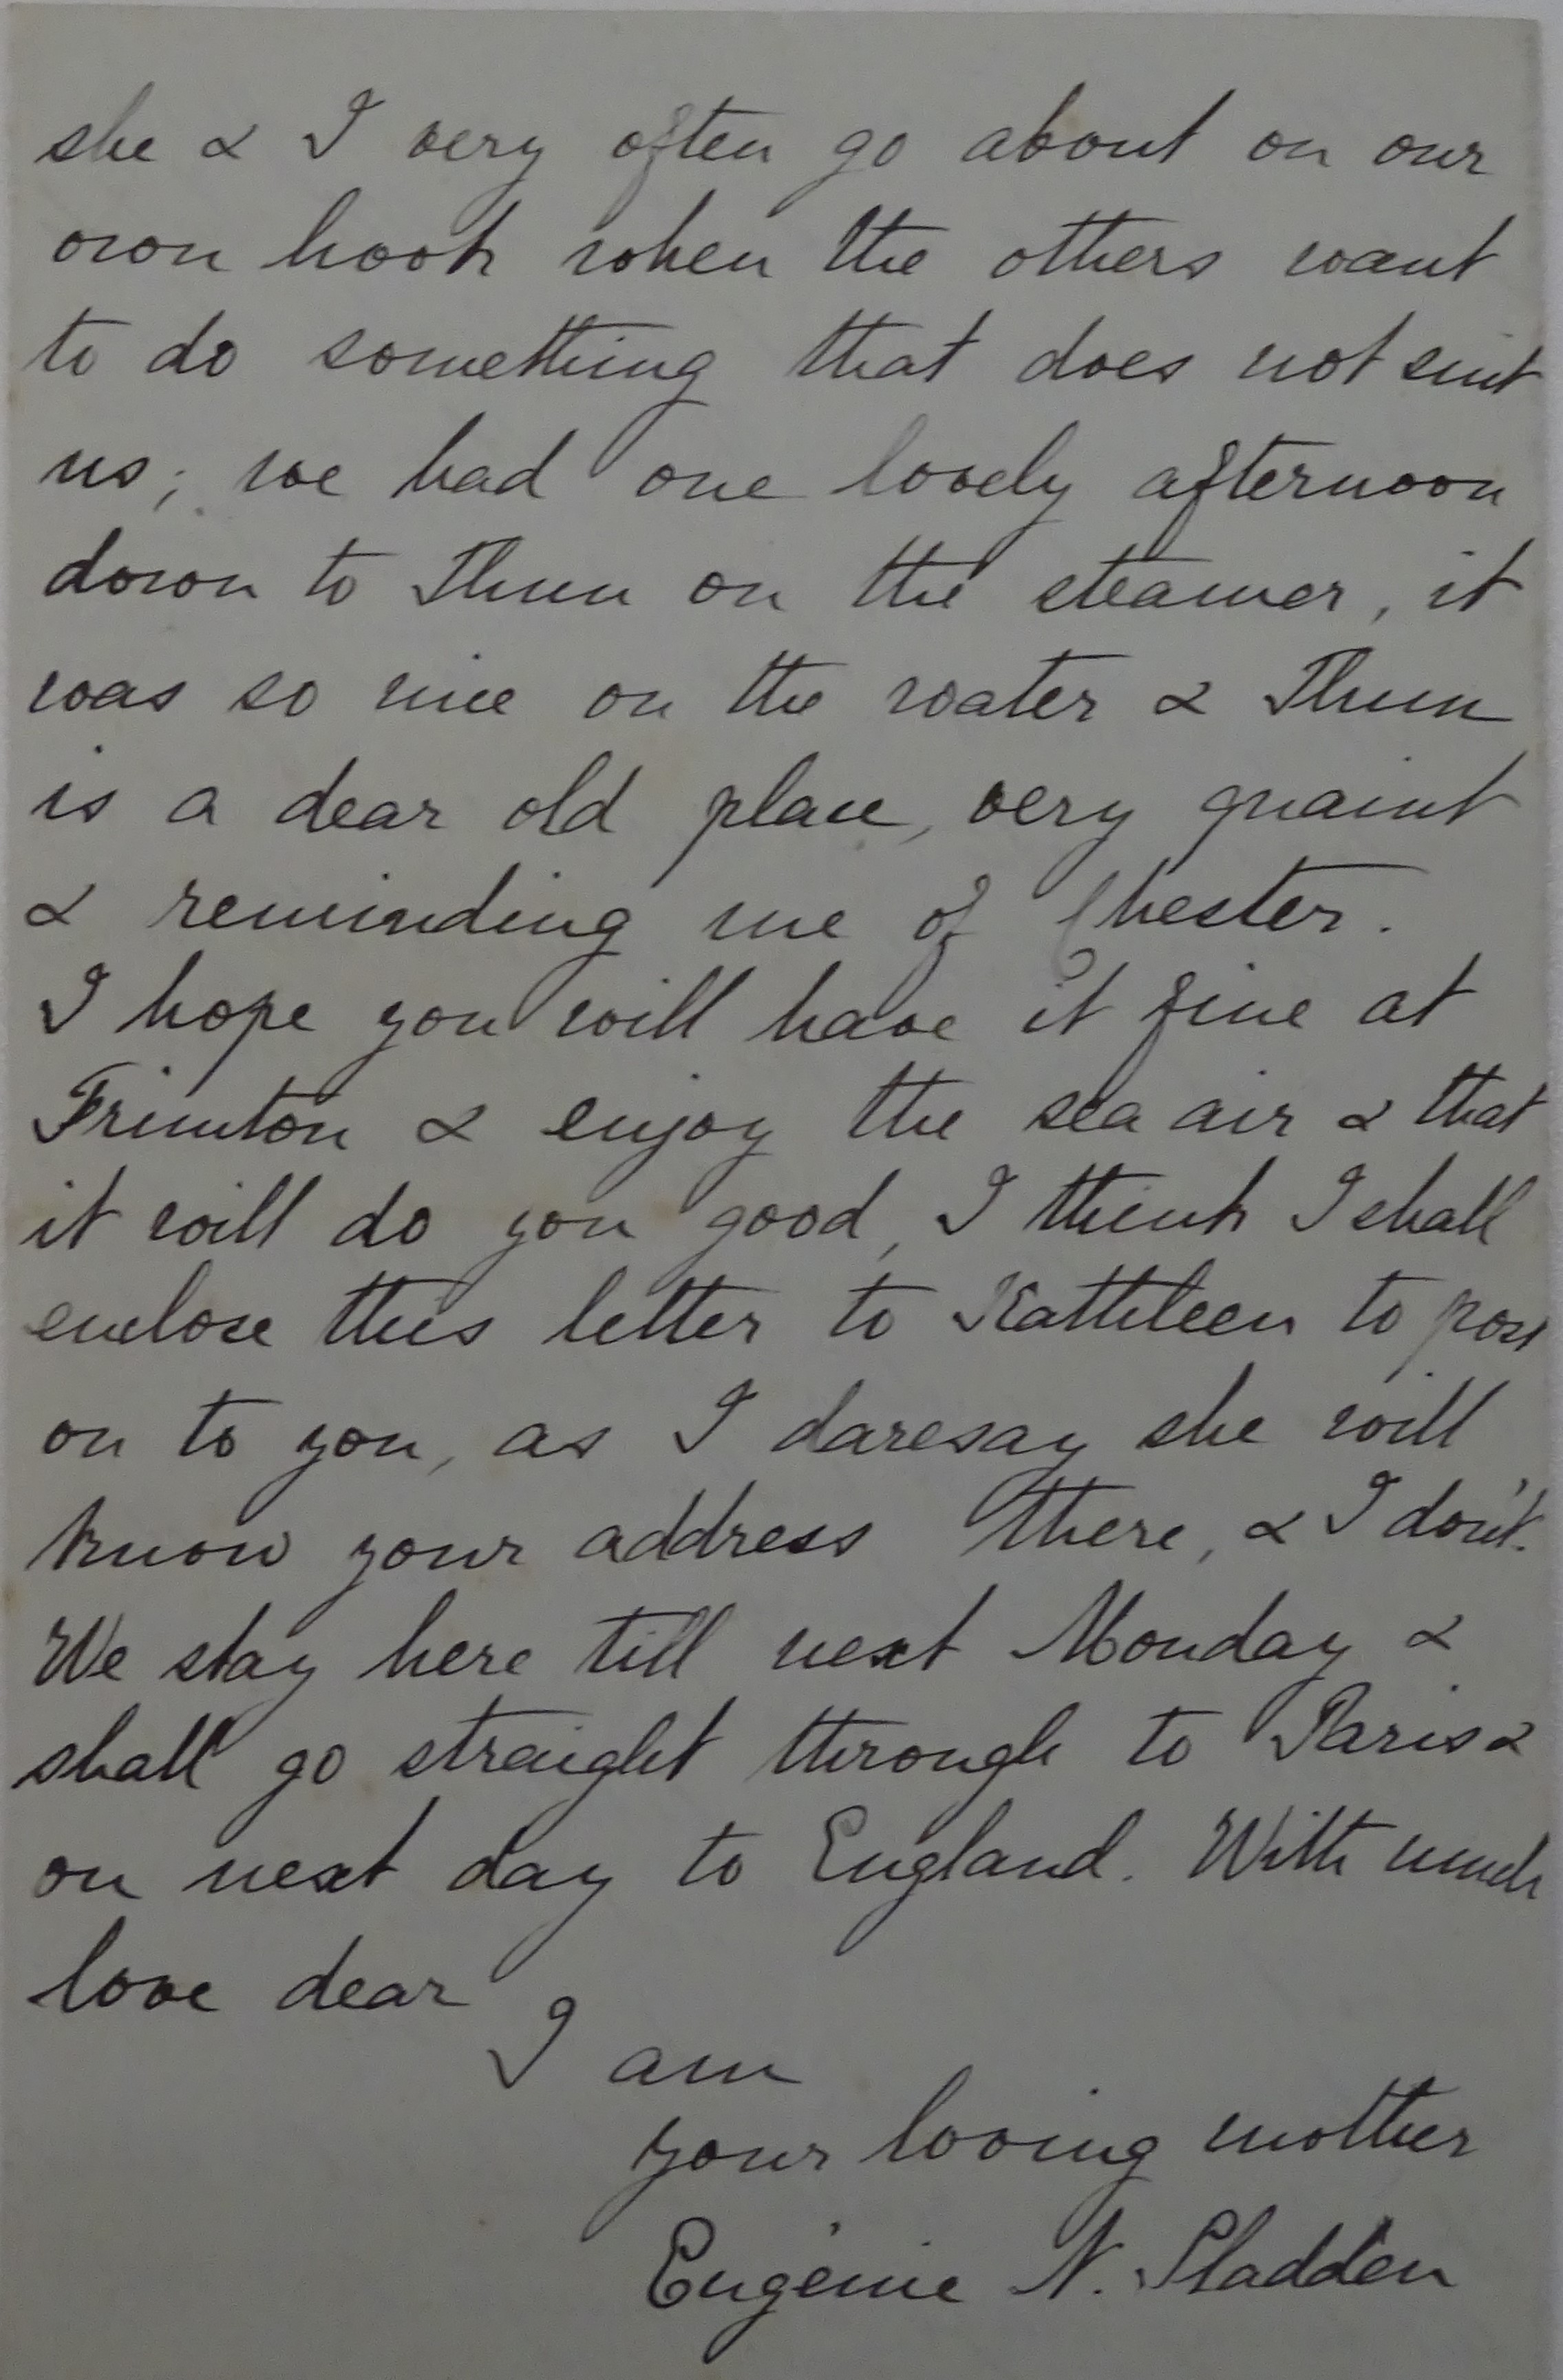 she & I very often go about on our
own hook when the others want
to do something that does not suit
us; we had one lovely afternoon
down to Thun on the steamer, it
was so nice on the water & Thun
is a dear old place, very quaint
& reminding me of Chester.
I hope you will have it fine at
Frinton & enjoy the sea air & that
it will do you good, I think I shall
enclose this letter to Kathleen to post
on to you, as I daresay she will
know your address there, & I don't.
We stay here till next Monday &
shall go straight through to Paris &
on next day to England. With much
love dear
I am
your loving mother
Eugénie N. Sladden